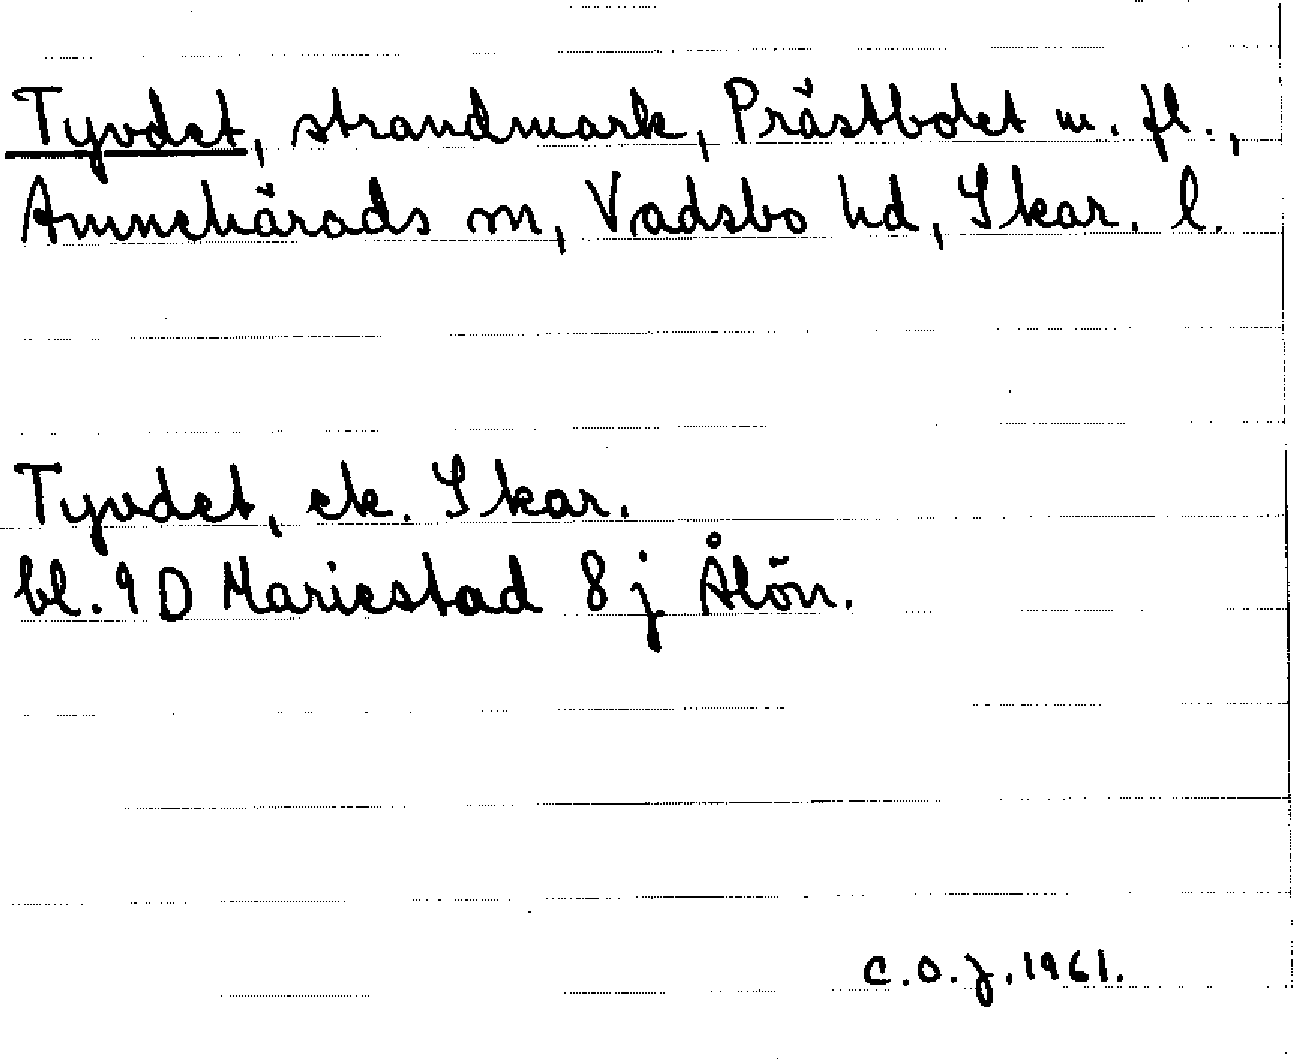 Tyvdet, strandmark, Prästbolet m. fl.,
Amnehärads sn, Vadsbo hd, Skar. l.
Tyvdet, ek. Skar.
bl. 9 D Mariestad 8 j Ålön.
C.O.J. 1961.